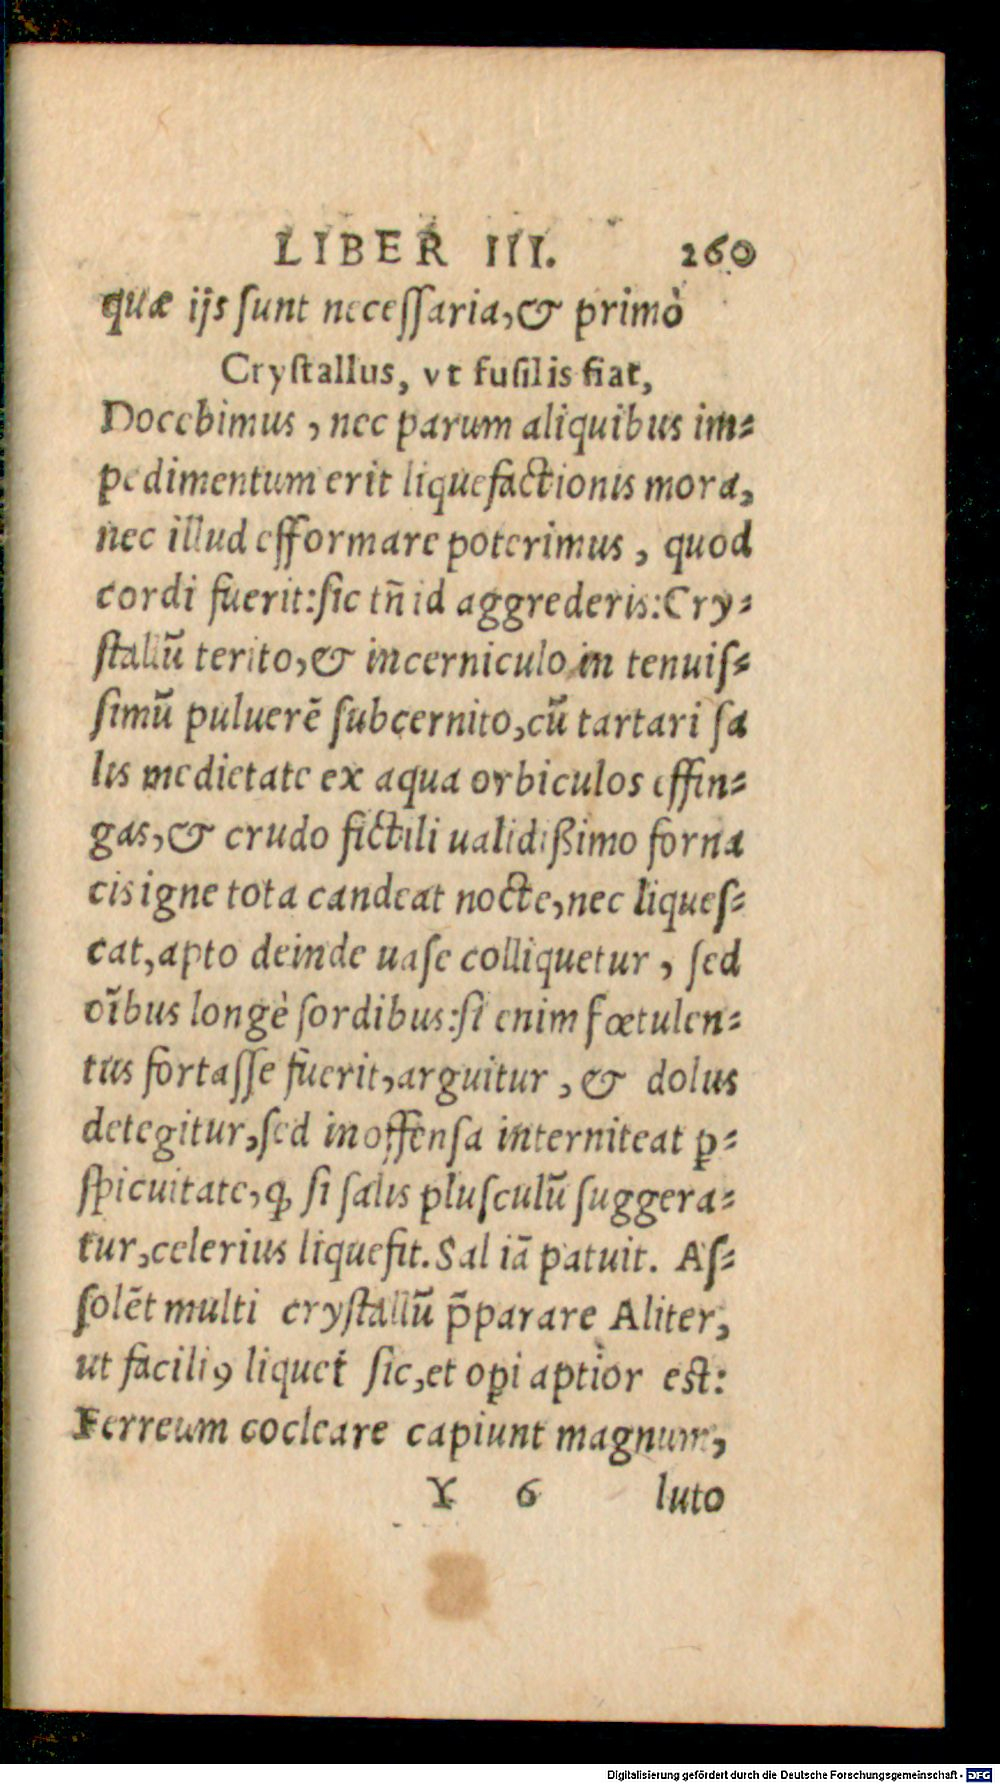 LIBER III. 260
quæ ijs ſunt neceſſaria, & primò
Cryſtallus, vt fuſilis fiat,
Docebimus, nec parum aliquibus im⸗
pedimentum erit liquefactionis mora,
nec illud efformare poterimus, quod
cordi fuerit: ſic tñ id aggrederis: Cry⸗
ſtallū terito, & incerniculo in tenuiſ⸗
ſimū puluerē ſubcernito, cū tartari ſa
lis medietate ex aqua orbiculos effin⸗
gas, & crudo fictili ualidißimo forna
cis igne tota candeat nocte, nec liqueſ⸗
cat, apto deinde uaſe colliquetur, ſed
oībus longè ſordibus: ſi enim fœtulen⸗
tus fortaſſe fuerit, arguitur, & dolus
detegitur, ſed inoffenſa interniteat ꝑ⸗
ſpicuitate, ꝙ ſi ſalis pluſculū ſuggera⸗
tur, celerius liquefit. Sal iā patuit. Aſ⸗
ſolēt multi cryſtallū p̄parare Aliter,
ut faciliꝰ liquet ſic, et oꝑi aptior est:
Ferreum cocleare capiunt magnum,
Y 6 luto
Digitalisierung gefördert durch die Deutsche Forschungsgemeinschaft - DFG